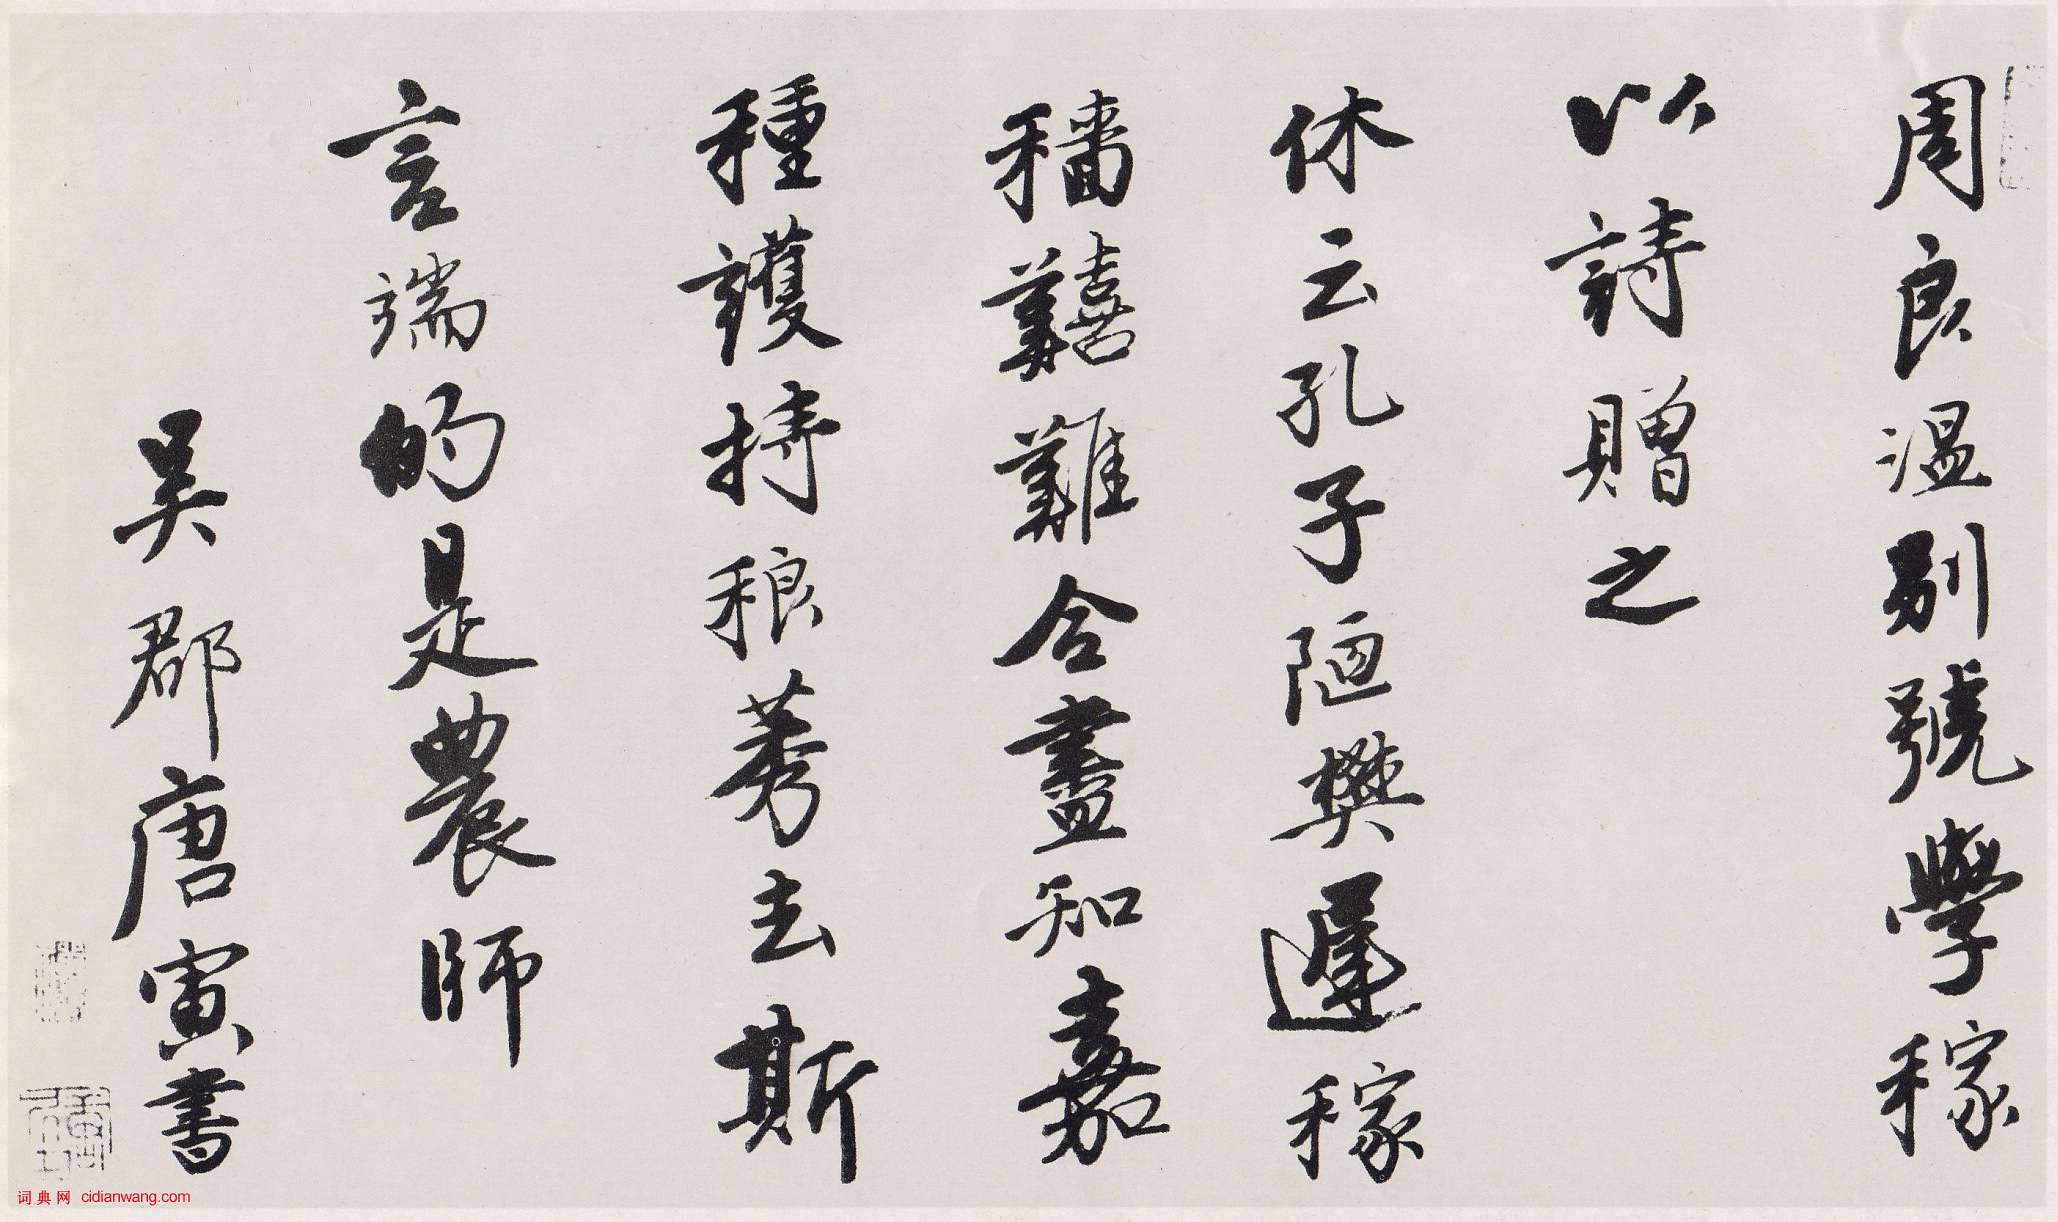 周良温別號學稼
以詩贈之
休云孔子陋樊遲稼
穡囏難合盡知嘉
種護持稂莠去斯
言端的是農師
吳郡唐寅書
词典网 cidianwang.com